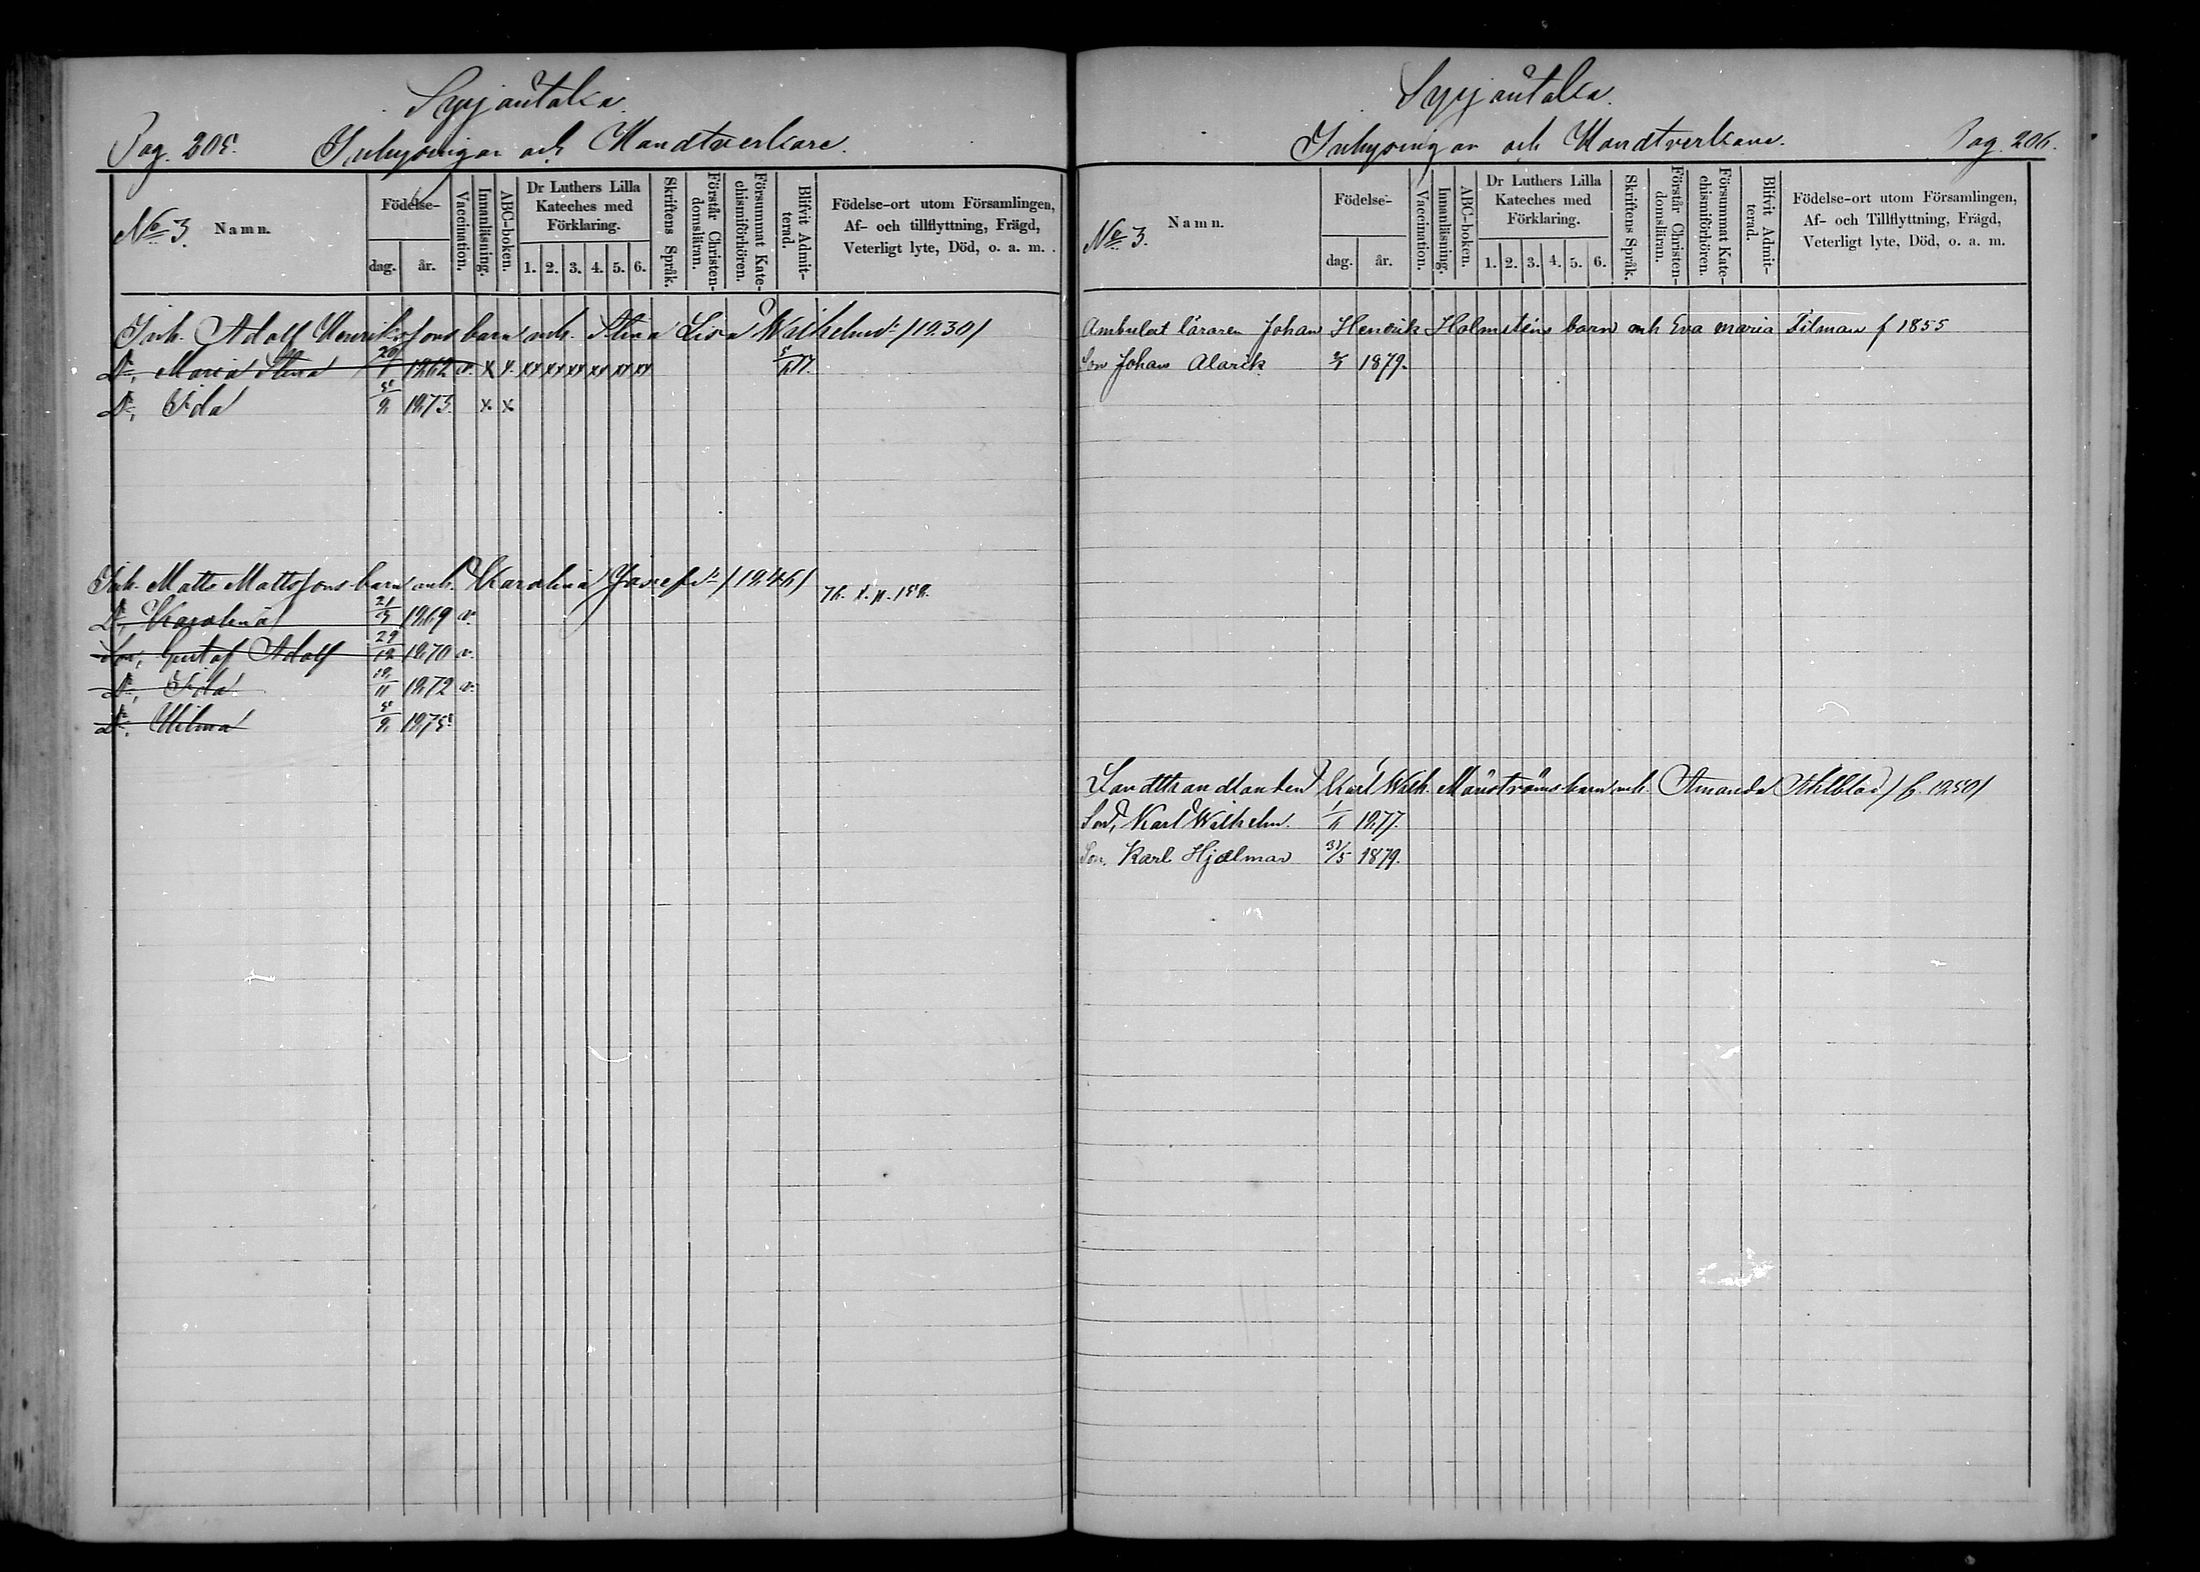 Syrjäntaka
Pag. 205. Inhysingar och Handtverkare.
No 3. Namn.
Födelse-
dag. år.
Vaccination.
Innanläsning.
ABC-boken.
Dr Luthers Lilla
Kateches med
Förklaring.
1. 2. 3. 4. 5. 6.
Skriftens Språk.
Förstår Christen-
domsläran.
Försummat Kate-
chismiförhören.
Blifvit Admit-
terad.
Födelse-ort utom Församlingen,
Af- och tillflyttning, Frägd,
Veterligt lyte, Död, o. a. m.
Inh. Adolf Henrikssons barn mh. Stina Lisa Wilhelmsdr /1830/
Dr, Maria Stina 1862 v. x x. xx xx xx xx xx xx
Dr, Ida 5/8 1873. x. x
Inh. Matts Mattssons barn mh. Karolina Josefsdr /1846/
Dr, Karolina 21/3 1869 v.
Son, Gustaf Adolf 29/12 1870 v.
Dr, Ida 18/11 1872 v.
Dr, Hilma 5/8 1875
Syrjäntaka.
Inhysingar och Handtverkare. Pag. 206.
No 3. Namn.
Födelse-
dag. år.
Vaccination.
Innanläsning.
ABC-boken.
Dr Luthers Lilla
Kateches med
Förklaring.
1. 2. 3. 4. 5. 6.
Skriftens Språk.
Förstår Christen-
domsläran.
Försummat Kate-
chismiförhören.
Blifvit Admit-
terad.
Födelse-ort utom Församlingen,
Af- och Tillflyttning, Frägd,
Veterligt lyte, Död, o. a. m.
Ambulat läraren Johan Henrik Holmsténs barn mh Eva Maria Tilman f 1855
Son Johan Alarik 1879.
Landthandlanden Karl Wilh. Månströms barn mh. Amanda Ahlblad /f. 1850/
Son, Karl Wilhelm. 1877.
Son, Karl Hjalmar 31/5 1879.